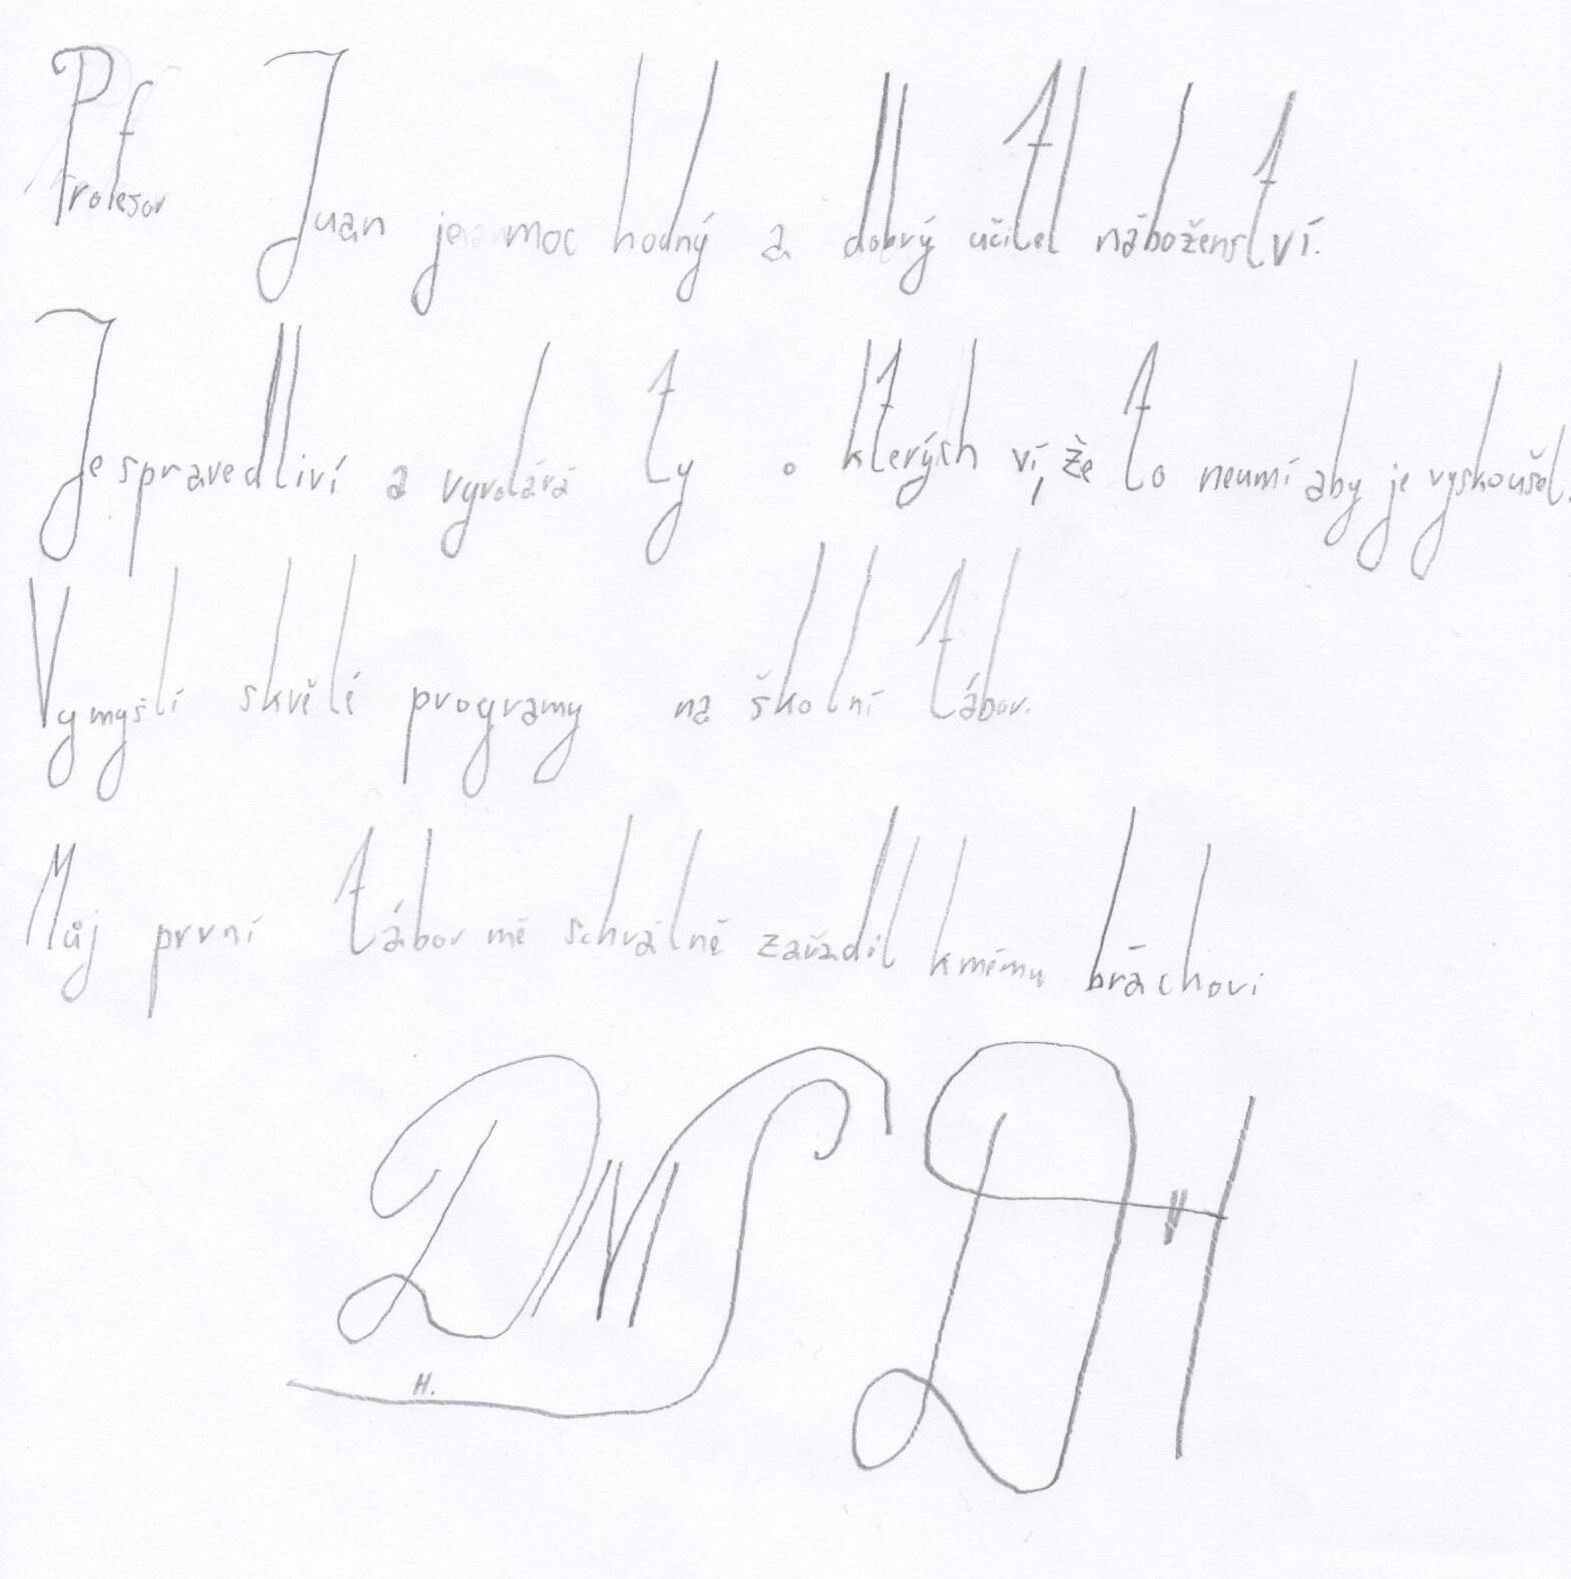 Profesor Juan je moc hodný a dobrý učitel náboženství.
Je spravedliví a vyvolává ty o kterých ví, že to neumí aby je vyskoušel.
Vymyšlí skvělé programy na školní tábor.
Můj první tábor mě schválně zařadil k mému bráchovi
H.